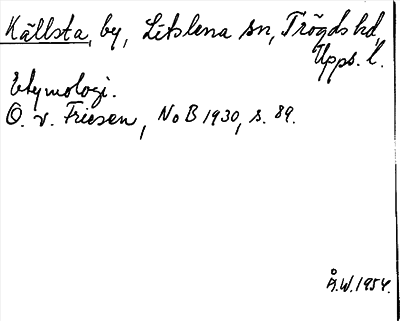 Källsta, by, Litslena sn, Trögds hd,
Upps. l.
Etymologi.
O. v. Friesen, NoB 1930, s. 89.
Å.W. 1954.